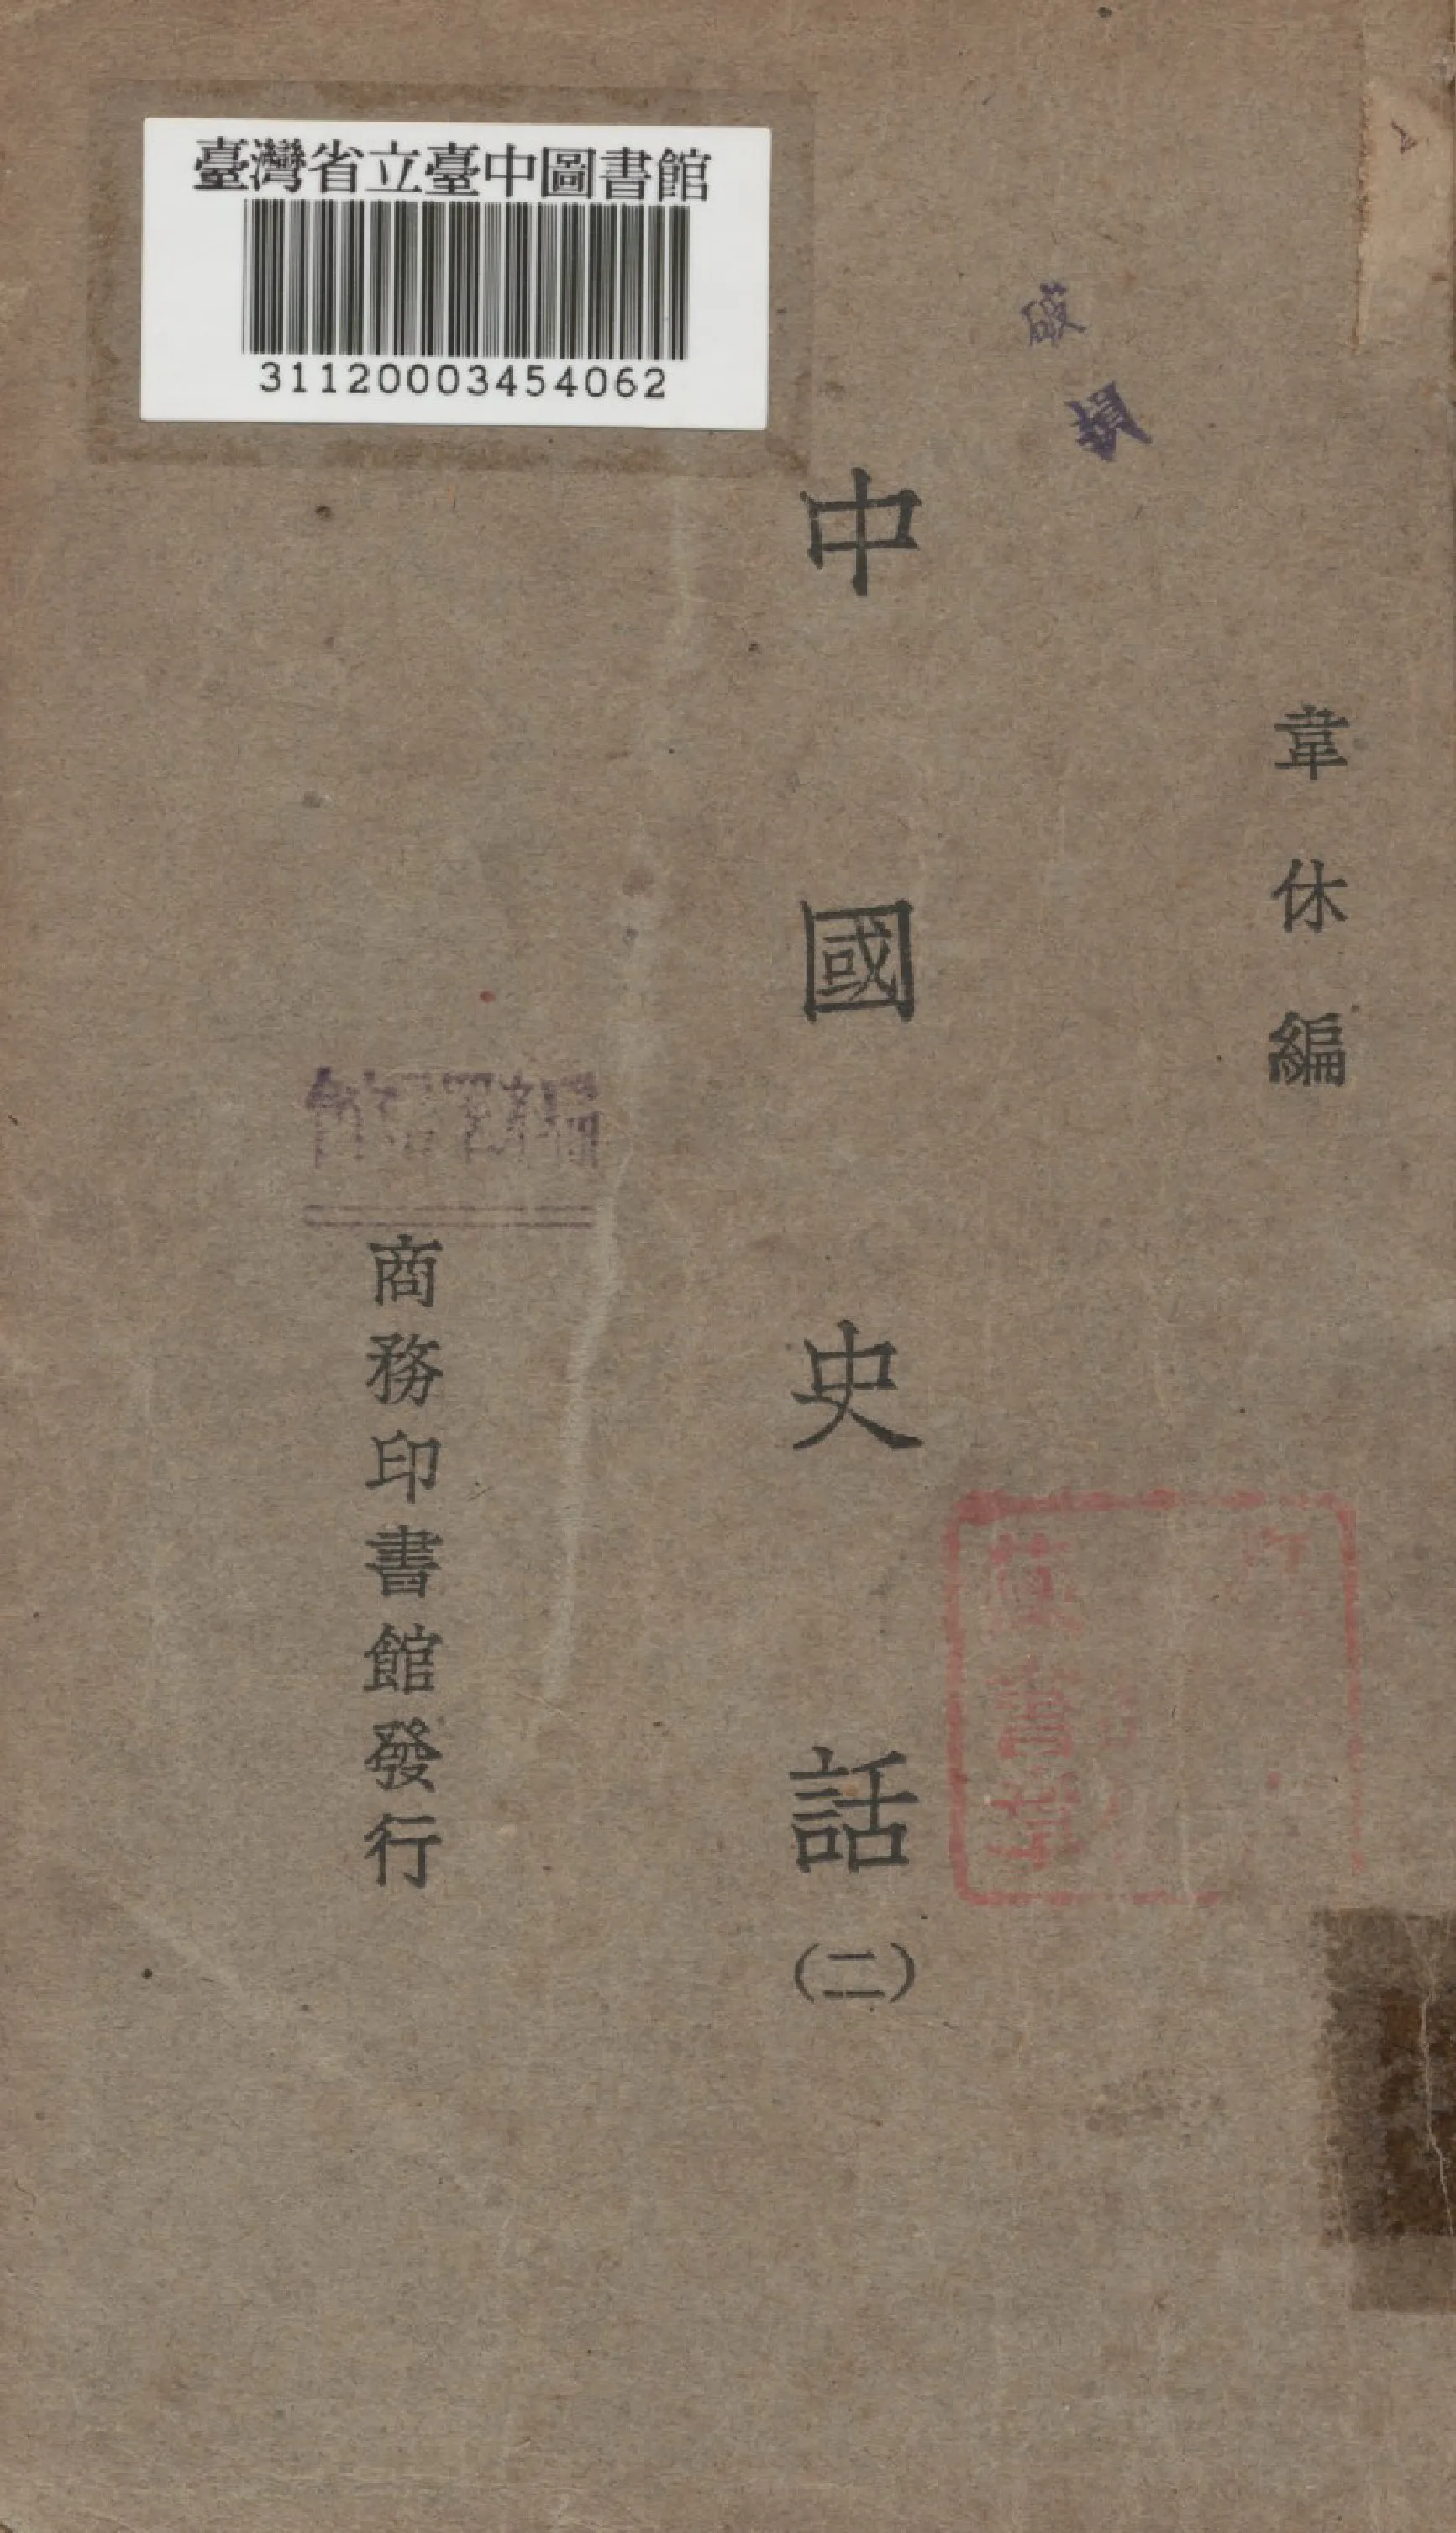 臺灣省立臺中圖書館
31120003454062
破損
韋休編
中國史話(二)
商務印書館發行
藏書章